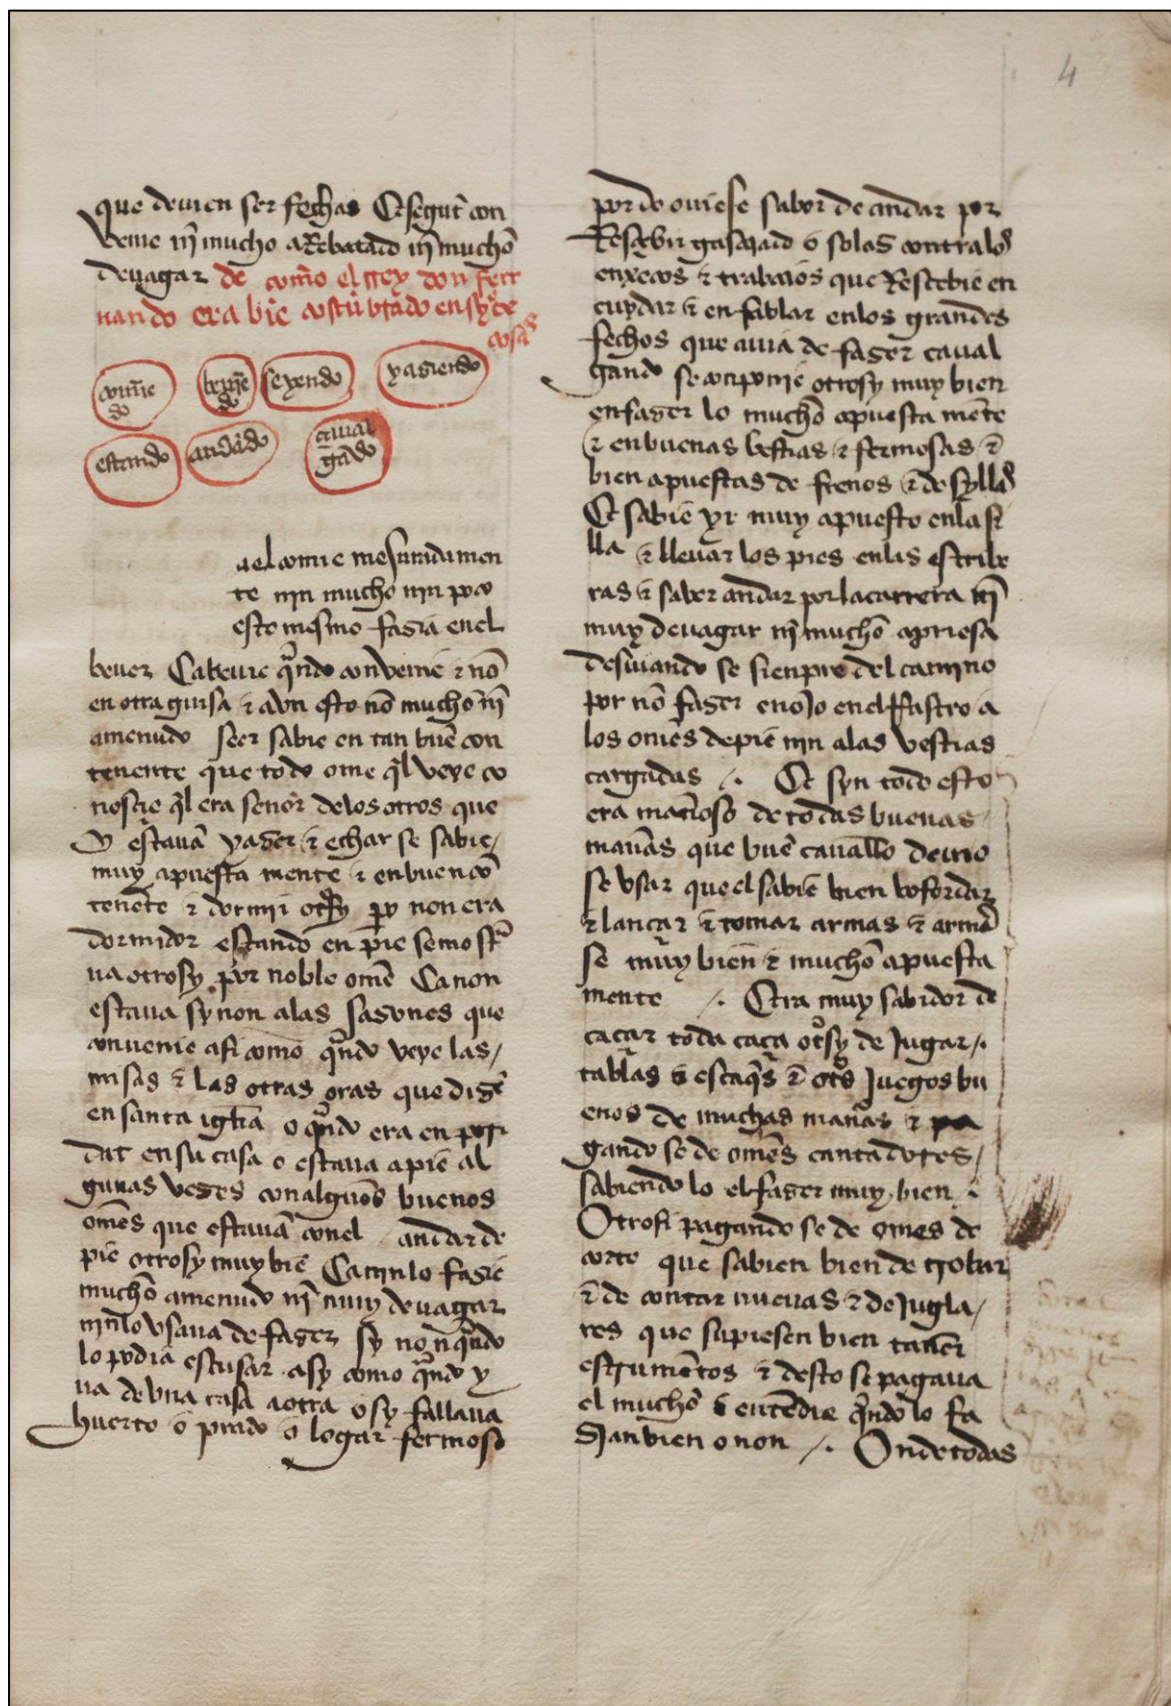 4
que deuien ser fechas Et segut̃ con
viene nĩ mucho aRebatado nĩ muchõ
deuagar de com̃o el rrey don fer
nando era biẽ costũbrado en syete
cosas
comiẽ
do
beuiẽ
do
seyendo
yasiendo
estando
andãdo
caual
gãdo
uel comie mesurada men
te nin mucho nin poco
esto mesmo fasia en el
beuer Ca beuie qñdo conveniẽ & nõ
en otra guisa & avn esto nõ muchõ nĩ
amenudo seer sabie en tan buẽ con
tenente que todo ome q̃l veye co
nosçie q̃l era señor delos otros que
y estauã yaser & echar se sabie /
muy apuesta mente & en buen cõ
tenẽte & dormir otrsy po non era
dormidor estando en pie se mostra
ua otrosy por noble omẽ Ca non
estaua sy non alas sasones que
conuenie asi como qñdo veye las /
misas & las otras oras que disẽ
en santa igl̃ia o qñdo era en pori
dat en su casa o estaua a pie al
gunas veses con alguõs buenos
omẽs que estauã conel andar de
pie otrosy muy biẽ Ca nin lo fasiẽ
muchõ amenudo nĩ muy deuagar
nin lo vsaua de faser sy non qñdo
lo podiã escusar asy como qñdo y
ua de vna casa a otra o sy fallaua
huerto o prado o logar fermoso
por do ouiese sabor de andar por
Resçebir gasajado o solas contra los
enxecos & trabaios que Resçebie en
cuydar & en fablar en los grandes
fechos que auia de faser caual
gando se conponie otrosy muy bien
en faser lo muchõ apuesta mẽte
& en buenas bestias & fermosas &
bien apuestas de frenos & de syllas
Et sabiẽ yr muy apuesto enla si
lla & lleuar los pies enlas estribe
ras & saber andar por la carrera nĩ
muy deuagar nĩ muchõ apriesa
desuiando se sienpre del camino
por nõ faser enojo en el Rastro a
los omẽs de piẽ nin alas vestias
cargadas /. Et syn todo esto
era mañoso de todas buenas
mañas que buẽ cauallo deuio
se vsar que el sabiẽ bien bofordar
& lançar & tomar armas & armar
se muy bien & muchõ apuesta
mente /. Era muy sabidor de
caçar toda caça otrsy de Jugar /.
tablas & escaq̃s & otros Juegos bu
enos de muchas mañas & pa
gando se de omẽs cantadores /
sabiendo lo el faser muy bien /.
Otrosi pagando se de omes de
corte que sabien bien de trobar
& de contar nueuas & de Jugla /
res que supiesen bien tañer
estrumẽtos & desto se pagaua
el muchõ & entẽdie qñdo lo fa
sian bien o non /. Onde todas